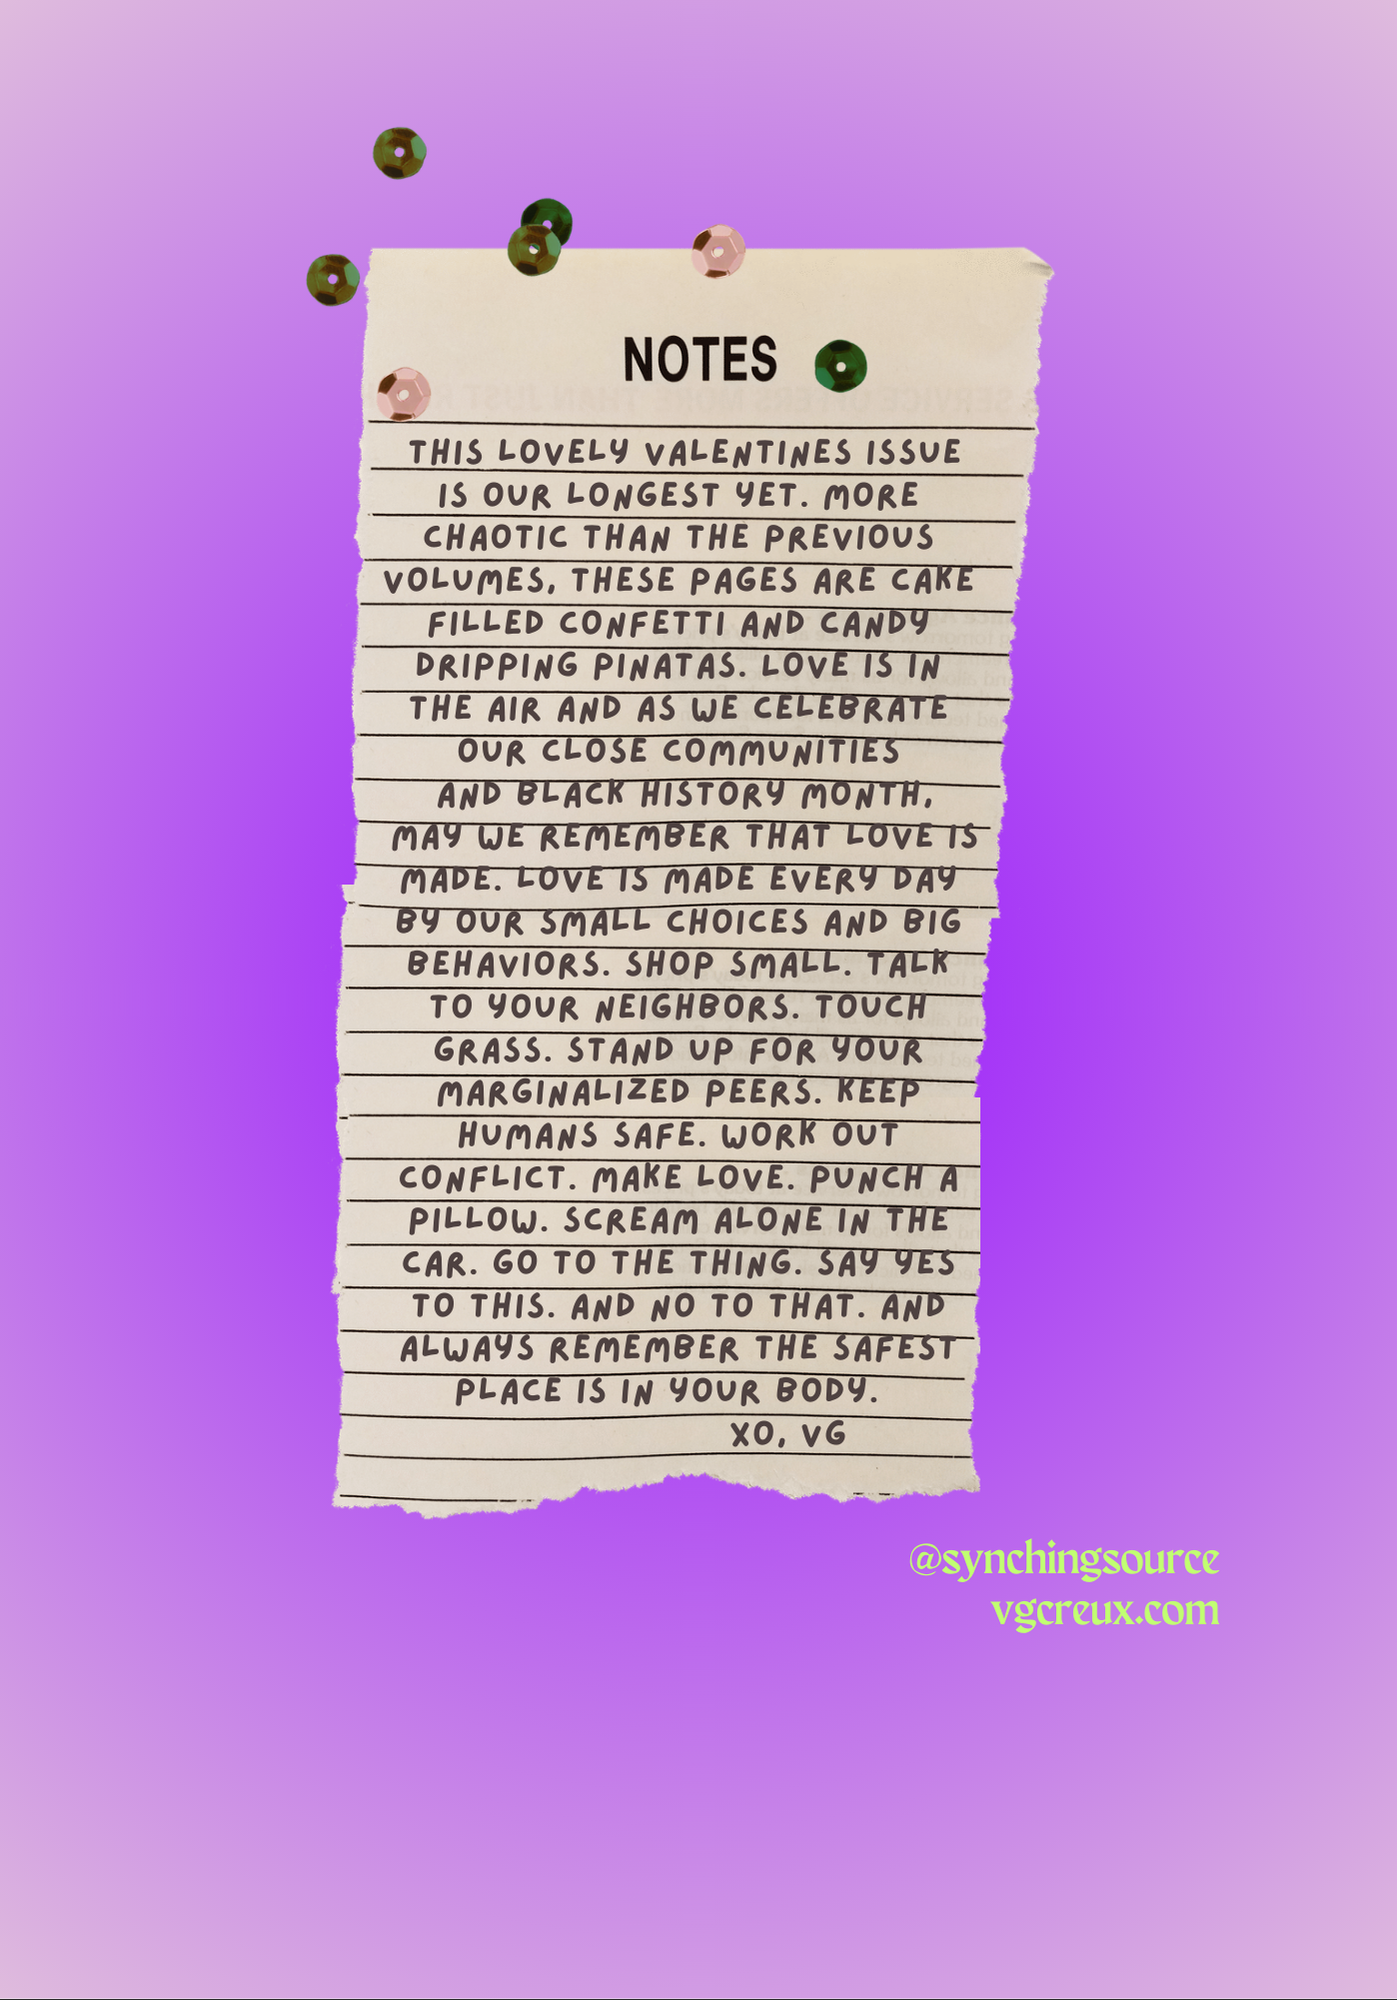 NOTES
THIS LOVELY VALENTINES ISSUE
IS OUR LONGEST YET. MORE
CHAOTIC THAN THE PREVIOUS
VOLUMES, THESE PAGES ARE CAKE
FILLED CONFETTI AND CANDY
DRIPPING PINATAS. LOVE IS IN
THE AIR AND AS WE CELEBRATE
OUR CLOSE COMMUNITIES
AND BLACK HISTORY MONTH,
MAY WE REMEMBER THAT LOVE IS
MADE. LOVE IS MADE EVERY DAY
BY OUR SMALL CHOICES AND BIG
BEHAVIORS. SHOP SMALL. TALK
TO YOUR NEIGHBORS. TOUCH
GRASS. STAND UP FOR YOUR
MARGINALIZED PEERS. KEEP
HUMANS SAFE. WORK OUT
CONFLICT. MAKE LOVE. PUNCH A
PILLOW. SCREAM ALONE IN THE
CAR. GO TO THE THING. SAY YES
TO THIS. AND NO TO THAT. AND
ALWAYS REMEMBER THE SAFEST
PLACE IS IN YOUR BODY.
XO, VG
@synchingsource
vgcreux.com